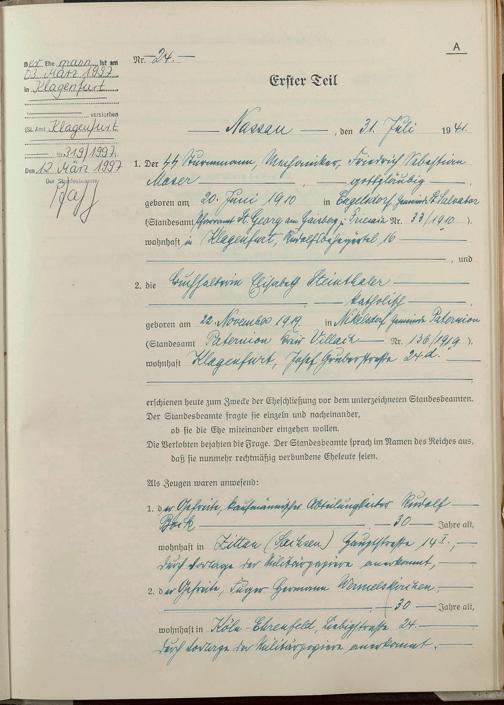 A
Nr. 24.
Erster Teil
Der Ehemann ist am
03. März 1997
in Klagenfurt
verstorben
(St. Amt Klagenfurt
Nr. 319/1997
Den 13 März 1997
Der Standesbeamte
Nassau, den 31. Juli 1941.
1. Der SS Sturmmann, Mechaniker, Friedrich Sebastian
Moser gottgläubig
geboren am 20. Juni 1910 in Engelsdorf Gemeinde St. Salvator
(Standesamt Pfarramt St. Georg am Gaisberg, Nr. 33/1910)
wohnhaft in Klagenfurt, 16
, und
2. die Buchhalterin Elisabeth Steinthaler
katholisch
geboren am 22. November 1919 in Nikelsdorf Gemeinde Paternion
(Standesamt Paternion Kreis Villach Nr. 136/1919)
wohnhaft Klagenfurt, Josef Gruberstraße 24 d.
erschienen heute zum Zwecke der Eheschließung vor dem unterzeichneten Standesbeamten.
Der Standesbeamte fragte sie einzeln und nacheinander,
ob sie die Ehe miteinander eingehen wollen.
Die Verlobten bejahten die Frage. Der Standesbeamte sprach im Namen des Reiches aus,
daß sie nunmehr rechtmäßig verbundene Eheleute seien.
Als Zeugen waren anwesend:
1. der Gefreite, kaufmännischer Abteilungsleiter Rudolf
30 Jahre alt,
wohnhaft in Zittau (Sachsen) Hauptstraße 14 I.,
durch Vorlage der Militärpapiere anerkannt,
2. der Gefreite, Hermann Wermelskirchen,
30 Jahre alt,
wohnhaft in Köln-Ehrenfeld, Liebigstraße 24.
durch Vorlage der Militärpapiere anerkannt.